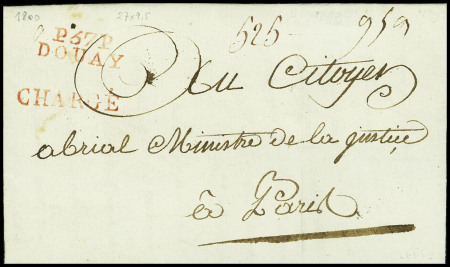 1800 27x9,5
P.57.P
DOUAY
CHARGÉ
525 959
Au Citoyen
abrial Ministre de la justice
à Paris